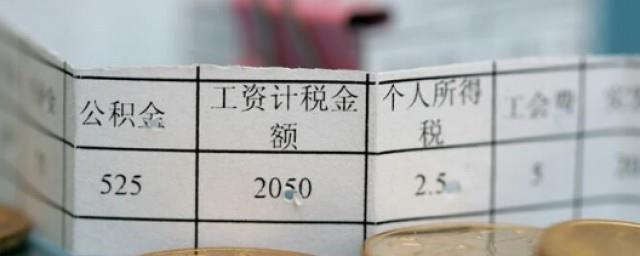 公积金
工资计税金
额
个人所得
税
工会费
525
2050
2.5
5